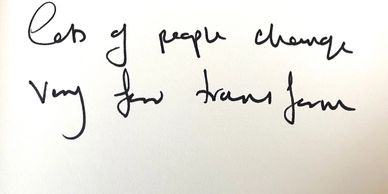 Lots of people change
Very few transform